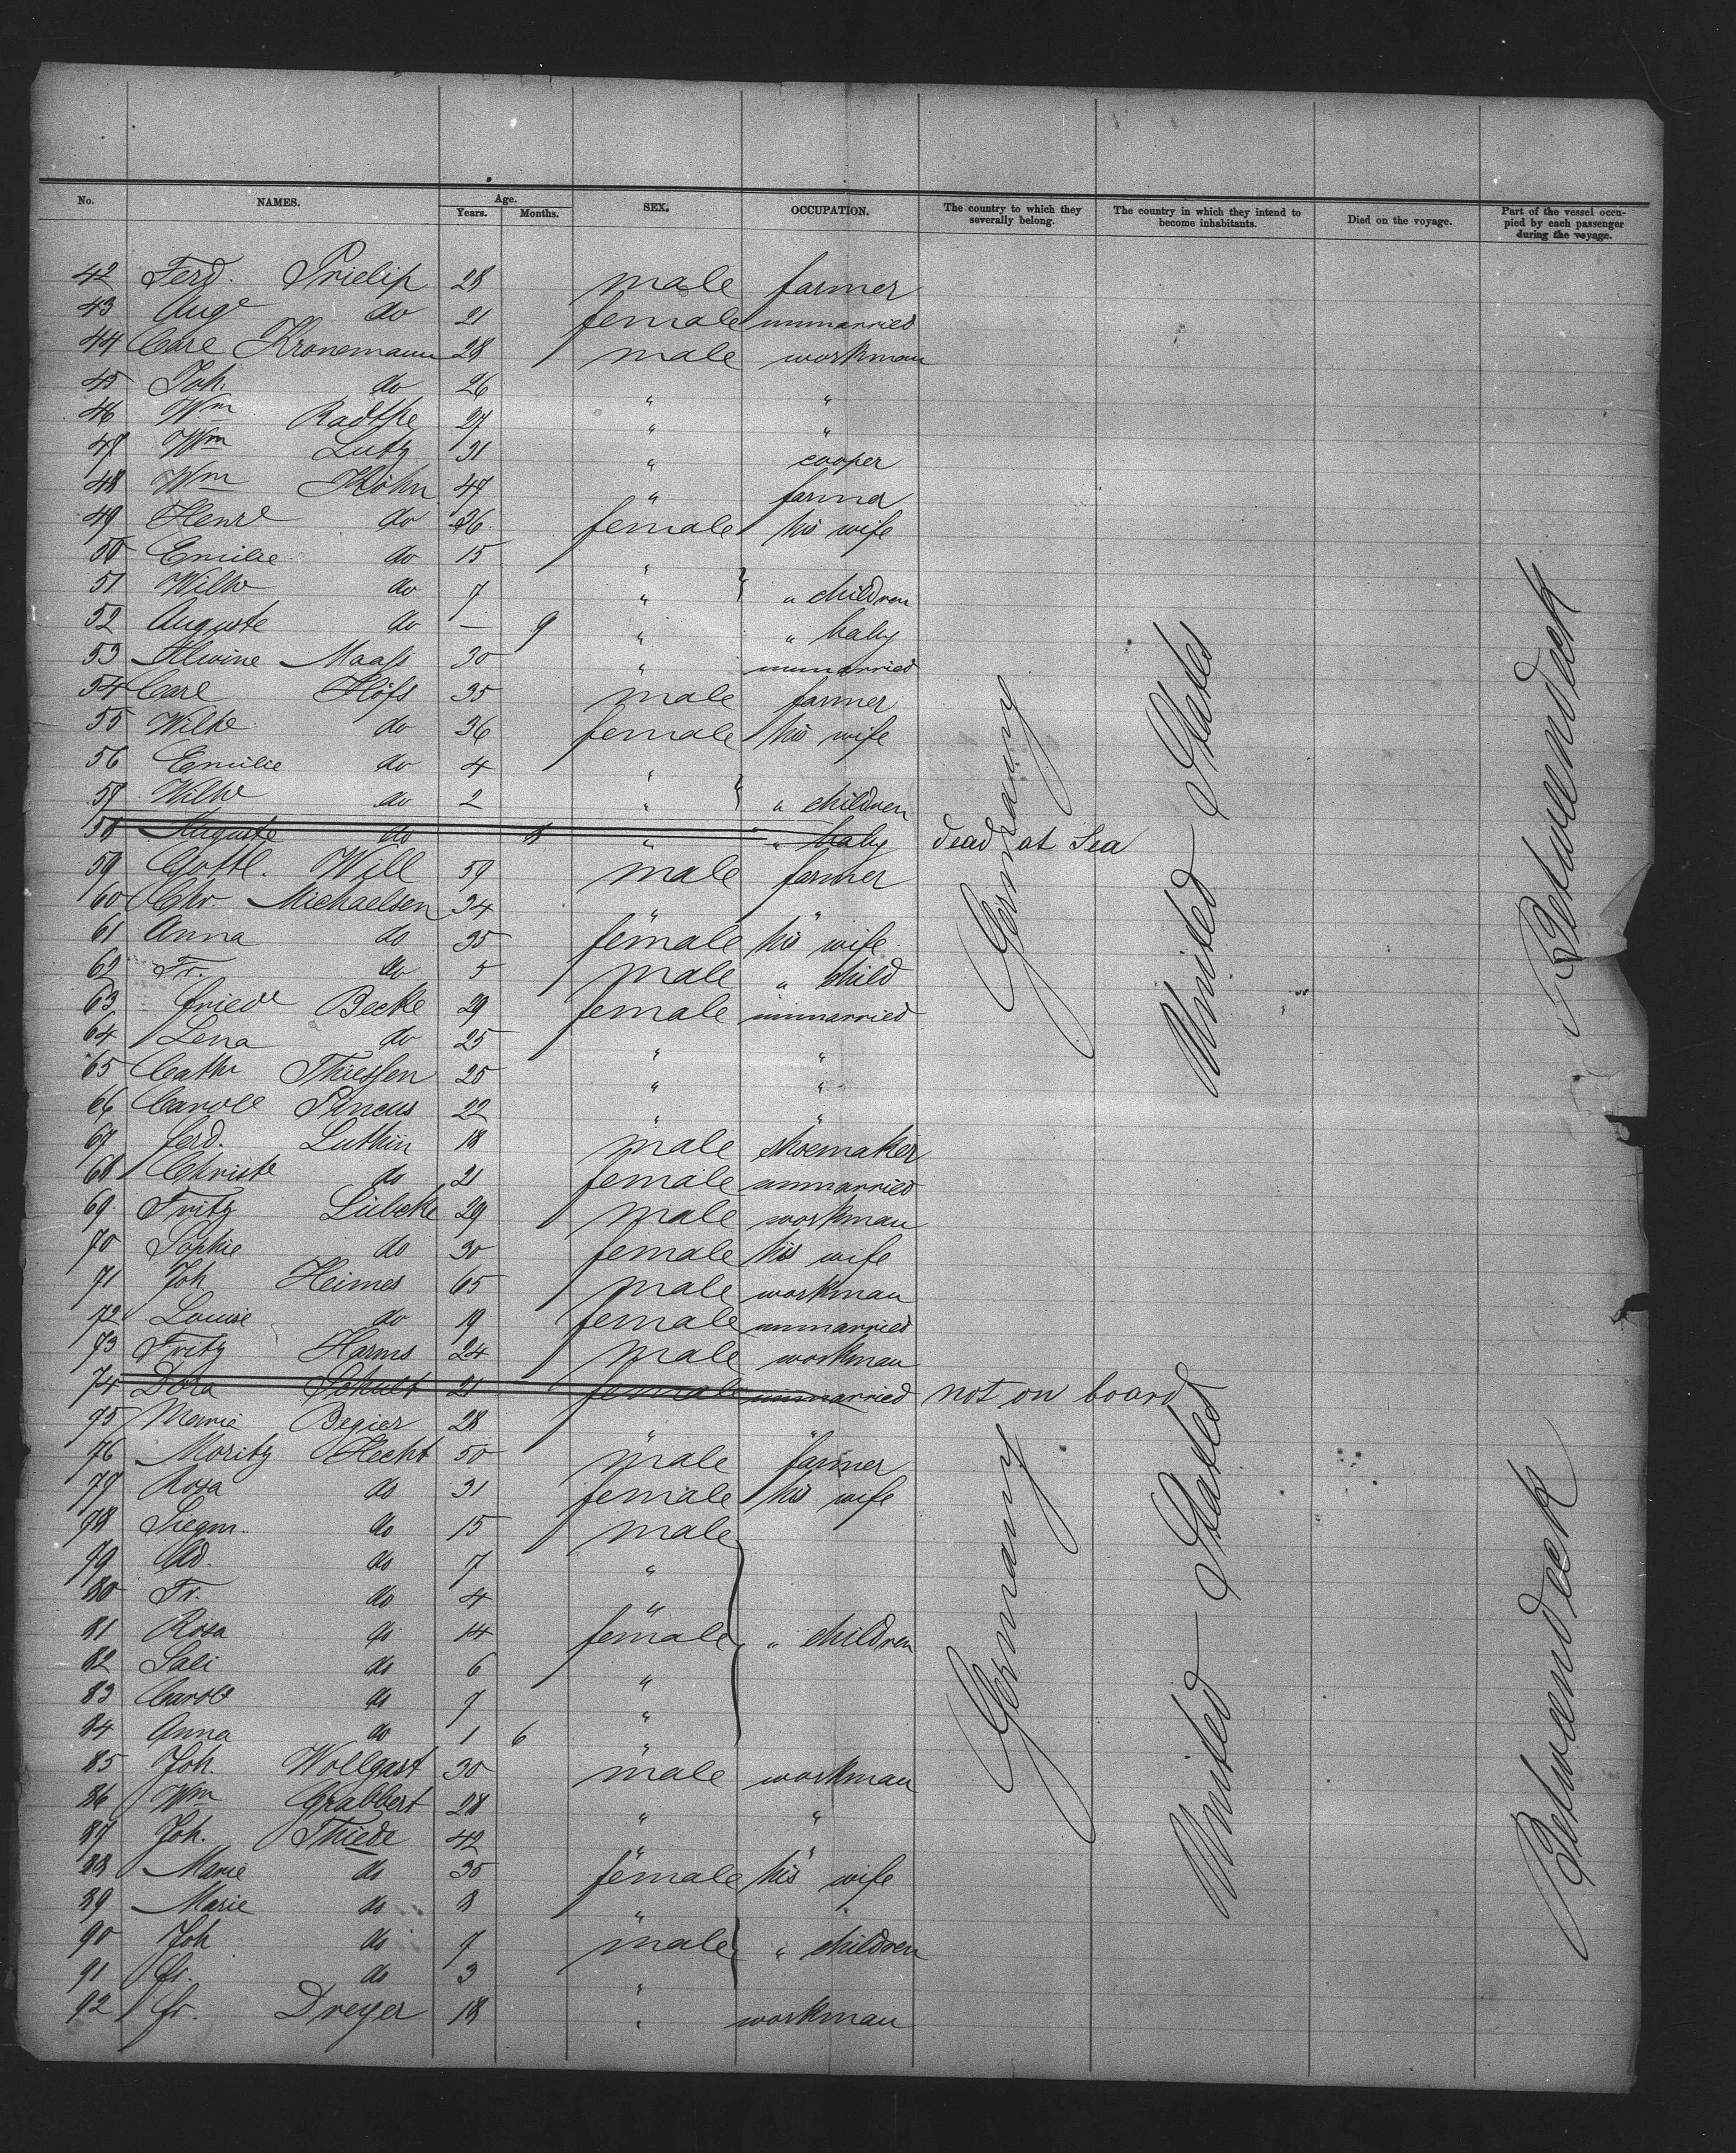 No. NAMES. Age. Years. Months. SEX. OCCUPATION. The country to which they severally belong. The country in which they intend to become inhabitants. Died on the voyage. Part of the vessel occupied by each passenger during the voyage.
42 Ferd. Prielip 28 male farmer
43 Auge do 21 female unmarried
44 Carl Kronemann 28 male workman
45 Joh. do 26 " "
46 Wm Radtke 27 " "
47 Wm Lutz 31 " cooper
48 Wm Köhn 47 " farmer
49 Henre do 36 female his wife
50 Emilie do 15 "
51 Wilhe do 7 " } " children
52 Auguste do — 9 " " baby
53 Alwine Maass 30 " unmarried
54 Carl Höfs 35 male farmer
55 Wilhe do 36 female his wife
56 Emilie do 4 "
57 Wilhe do 2 " } " children
58 Auguste do " " baby dead at Sea
59 Gottl. Will 59 male farmer
60 Chr. Michaelsen 34 " "
61 Anna do 35 female his wife
62 Fr. do 5 male " child
63 Friede Becke 29 female unmarried
64 Lena do 25 " "
65 Cathe Thiessen 25 " "
66 Carole Pincus 22 " "
67 Ferd. Luthin 18 male shoemaker
68 Christe do 21 female unmarried
69 Fritz Lübcke 29 male workman
70 Sophie do 30 female his wife
71 Joh. Heimes 65 male workman
72 Louise do 19 female unmarried
73 Fritz Harms 24 male workman
74 Dora Schult 21 female unmarried not on board
75 Marie Begier 28 " "
76 Moritz Hecht 50 male farmer
77 Rosa do 31 female his wife
78 Siegm. do 15 male
79 Ad. do 7 "
80 Fr. do 4 "
81 Rosa do 14 female " children
82 Sali do 6 "
83 Carole do 7 "
84 Anna do 1 6 "
85 Joh. Wollgast 30 male workman
86 Wm Grabbert 28 " "
87 Joh. Thiede 42 " "
88 Marie do 35 female his wife
89 Marie do 8 "
90 Joh do 7 male } " children
91 Fr. do 3 "
92 Fr. Dreyer 18 " workman
Germany
United States
Betweendeck
Germany
United States
Betweendeck